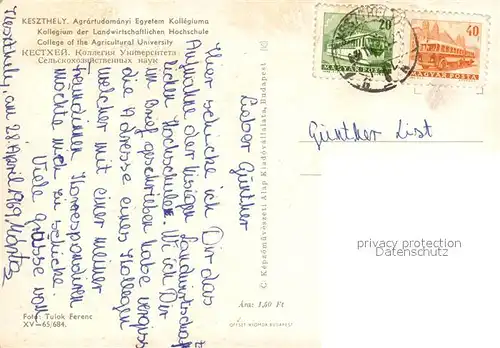 KESZTHELY. Agrártudományi Egyetem Kollégiuma
Kollegium der Landwirtschaftlichen Hochschule
College of the Agricultural University
КЕСТХЕЙ. Коллегия Университета
Сельскохозяйственных наук
20
MAGYAR POSTA
40
MAGYAR POSTA
Keszthely, am 28. April 1969
Lieber Günther
Hier schicke ich Dir das
Aufnahme der hiesigen Landwirtschaft-
lichen Hochschule. Wie ich Dir
im Brief geschrieben habe vergiss
die Adresse eines Kollegen
welcher mit einer meiner
Freundinnen korrespondieren
möchte mich zu schicke.
Viele Grüsse von
Günther List
C. Képzőművészeti Alap Kiadóvállalata, Budapest
Ára: 1,50 Ft
OFFSET NYOMDA BUDAPEST
Foto: Tulok Ferenc
XV—65/684.
privacy protection
Ansichtskartenversand.com